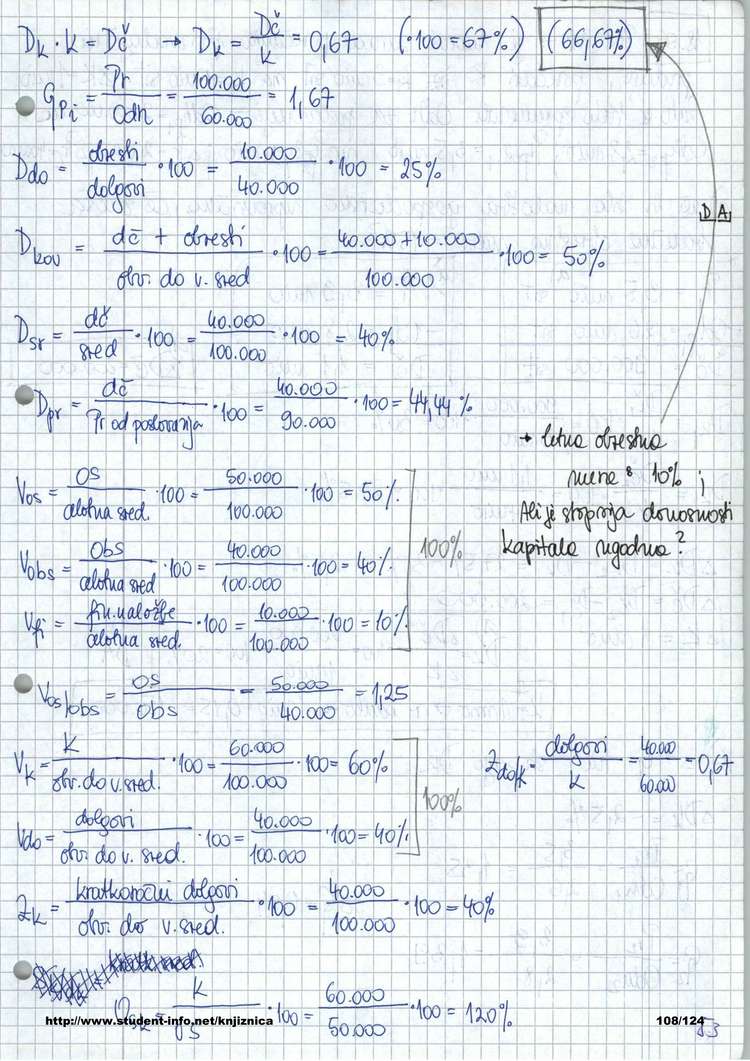 Dk · K = Dč → Dk = Dč / K = 0,67 (·100 = 67%) (66,67%)
gPi = Pr / Odh = 100.000 / 60.000 = 1,67
Ddo = obresti / dolgovi · 100 = 10.000 / 40.000 · 100 = 25%
DA
Dkov = dč + obresti / obv. do v. sred · 100 = 40.000 + 10.000 / 100.000 · 100 = 50%
Dsr = dč / sred · 100 = 40.000 / 100.000 · 100 = 40%
Dpr = dč / Pr od poslovanja · 100 = 40.000 / 90.000 · 100 = 44,44 %
→ letna obrestna
mera: 10% ;
Ali je stopnja donosnosti
kapitala ugodna?
Vos = OS / celotna sred. · 100 = 50.000 / 100.000 · 100 = 50%
Vobs = Obs / celotna sred · 100 = 40.000 / 100.000 · 100 = 40%
100%
Vfi = fin. naložbe / celotna sred. · 100 = 10.000 / 100.000 · 100 = 10%
Vos/obs = OS / obs = 50.000 / 40.000 = 1,25
Vk = K / obv. do v. sred. · 100 = 60.000 / 100.000 · 100 = 60%
Zdo/k = dolgovi / K = 40.000 / 60.000 = 0,67
100%
Vdo = dolgovi / obv. do v. sred. · 100 = 40.000 / 100.000 · 100 = 40%
Zk = kratkoročni dolgovi / obv. do v. sred. · 100 = 40.000 / 100.000 · 100 = 40%
K / OS · 100 = 60.000 / 50.000 · 100 = 120%
http://www.student-info.net/knjiznica
108/124
53